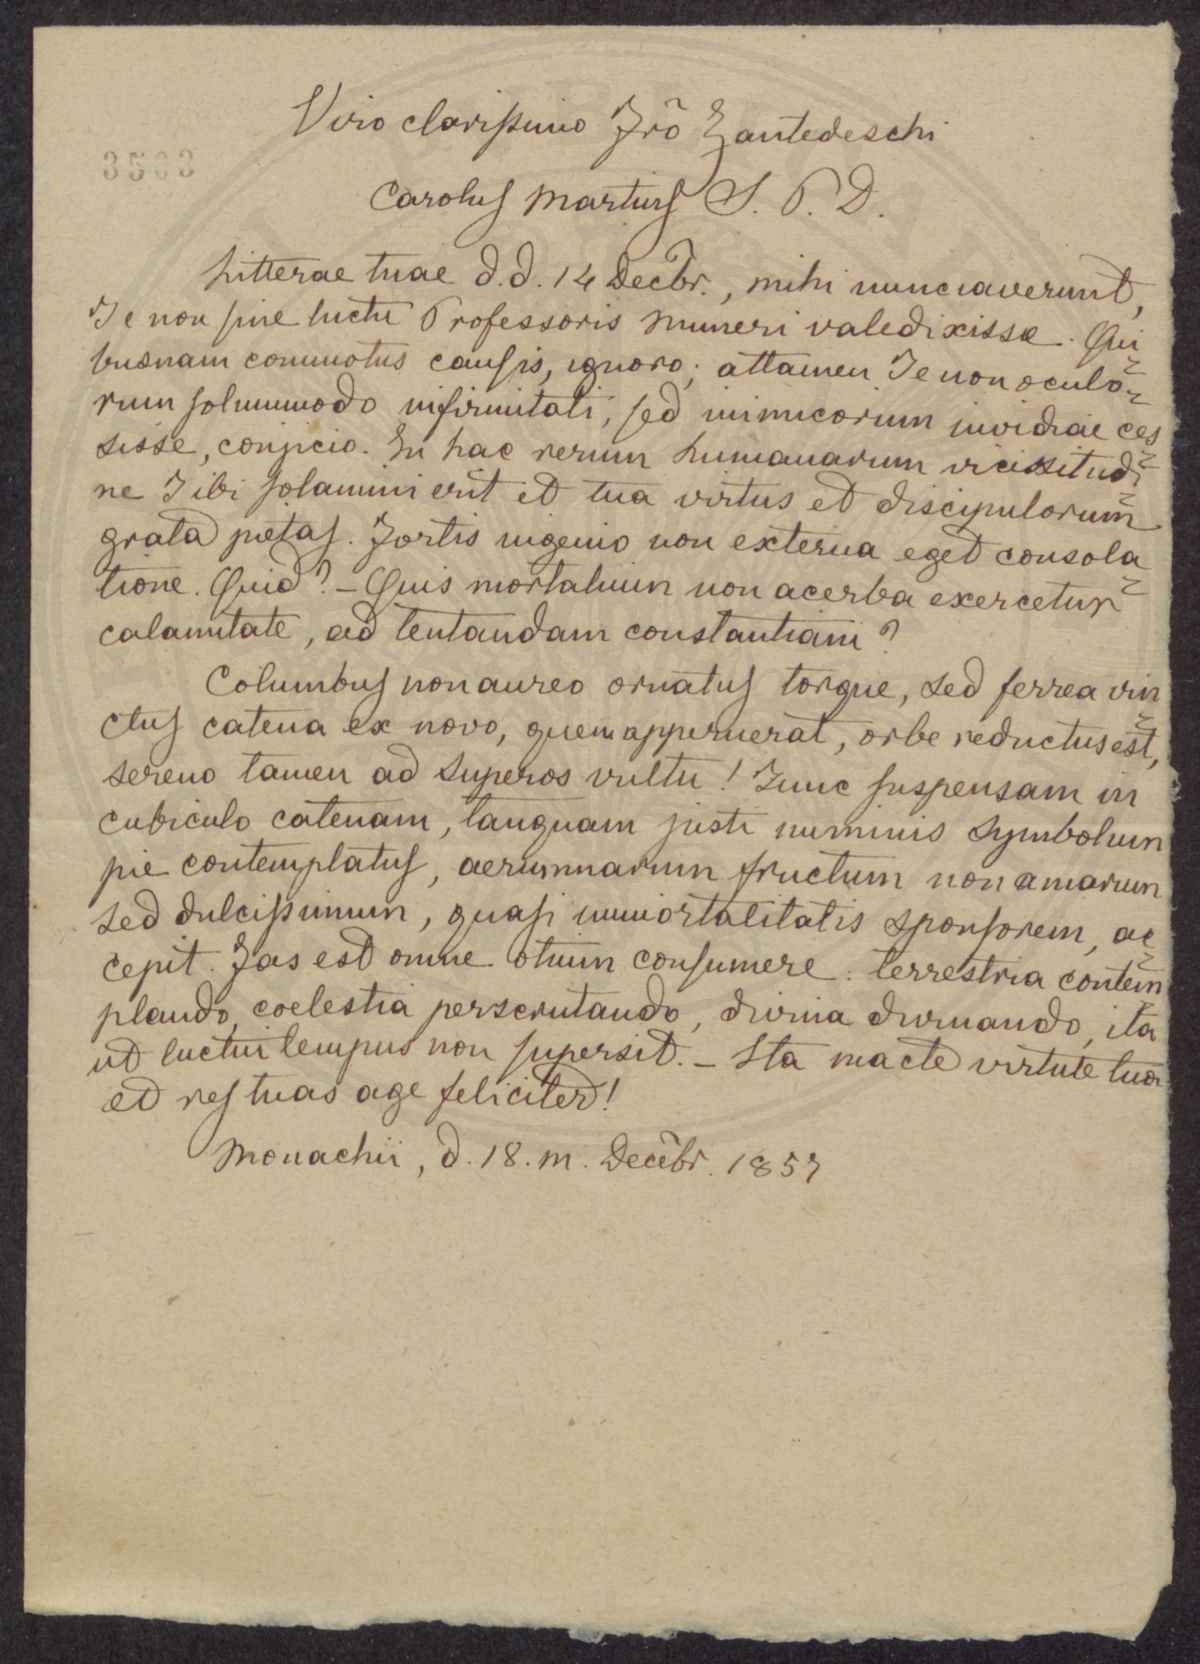 Viro clarissimo Frō Zantedeschi
3503
Carolus Martius S. P. D.
Litterae tuae d. d. 14 Decbr., mihi nunciaverunt,
Te non sine luctu Professoris muneri valedixisse. Qui
busnam commotus causis, ignoro; attamen Te non oculo=
rum solummodo infirmitati, sed inimicorum invidiae ces
sisse, conjicio. In hac rerum humanarum vicissitudi=
ne Tibi solamini erit et tua virtus et discipulorum
grata pietas. Fortis ingenio non externa eget consola=
tione. Quid? – Quis mortalium non acerba exercetur
calamitate, ad tentandam constantiam?
Columbus non aureo ornatus torque, sed ferrea vin=
ctus catena ex novo, quem apperuerat, orbe reductus est,
sereno tamen ad superos vultu! Tunc suspensam in
cubiculo catenam, tanquam justi numinis symbolum
pie contemplatus, aerumnarum fructum non amarum
sed dulcissimum, quasi immortalitatis sponsorem, ac=
cepit. Fas est omne otium consumere: terrestria contem=
plando, coelestia perscrutando, divina divinando, ita
ut luctui tempus non supersit. – Sta macte virtute tua
et res tuas age feliciter!
Monachii, d. 18. m. Decēbr. 1857